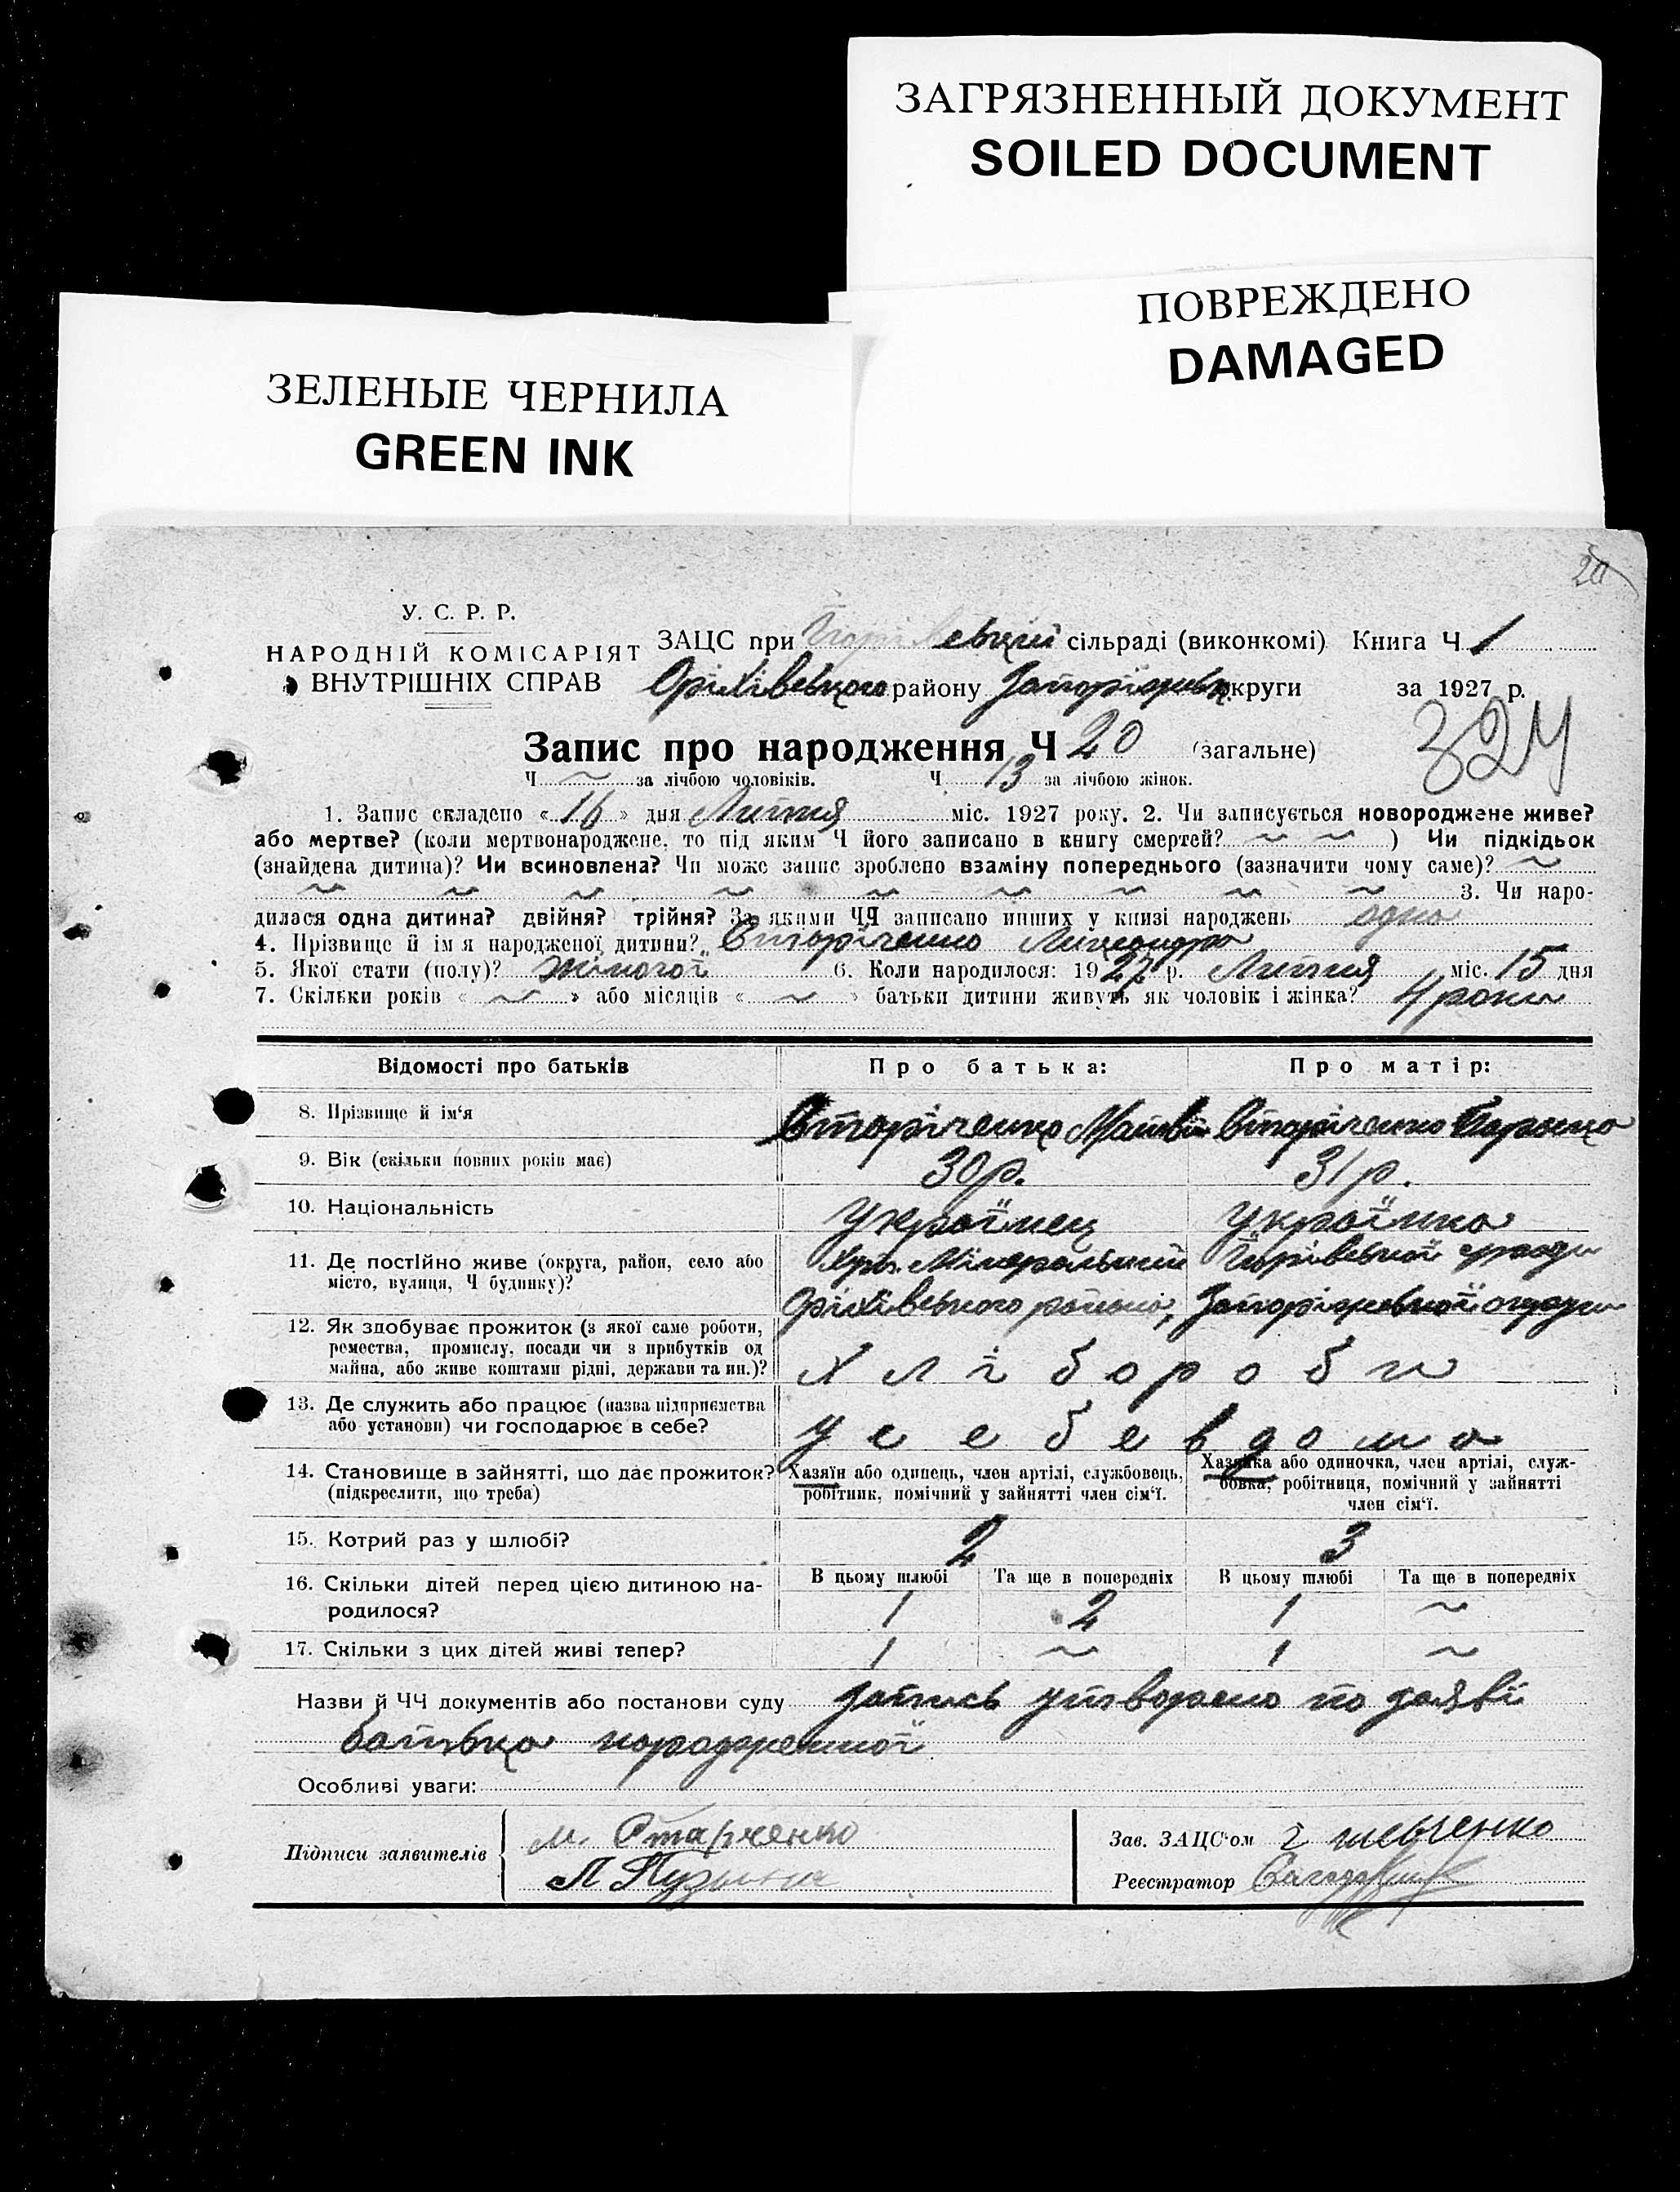 ЗАГРЯЗНЕННЫЙ ДОКУМЕНТ
SOILED DOCUMENT
ПОВРЕЖДЕНО
DAMAGED
ЗЕЛЕНЫЕ ЧЕРНИЛА
GREEN INK
20
У. С. Р. Р.
НАРОДНІЙ КОМІСАРІЯТ
ВНУТРІШНІХ СПРАВ
ЗАЦС при сільраді (виконкомі) Книга Ч 1
Оріхівського району Запоріжськ округи за 1927 р.
324
Запис про народження Ч 20 (загальне)
Ч ~ за лічбою чоловіків. Ч 13 за лічбою жінок.
1. Запис складено « 16 » дня Липня міс. 1927 року. 2. Чи записується новороджене живе?
або мертве? (коли мертвонароджене, то під яким Ч його записано в книгу смертей? ~ ~ ) Чи підкідьок
(знайдена дитина)? Чи всиновлена? Чи може запис зроблено взаміну попереднього (зазначити чому саме)? ~
~ ~ ~ ~ ~ ~ ~ ~ ~ 3. Чи наро-
дилася одна дитина? двійня? трійня? За якими ЧЧ записано инших у книзі народжень одна
4. Прізвище й ім'я народженої дитини?
5. Якої стати (полу)? жіночої 6. Коли народилося: 1927 р. Липня міс. 15 дня
7. Скільки років « ~ » або місяців « ~ » батьки дитини живуть як чоловік і жінка? 4 роки
Відомості про батьків Про батька: Про матір:
8. Прізвище й ім'я Матвій
9. Вік (скільки повних років має) 30 р. 31 р.
10. Національність Українец Українка
11. Де постійно живе (округа, район, село або
місто, вулиця, Ч будинку)?
Хут. Мінеральний
Оріхівського району, Запоріжської округи
12. Як здобуває прожиток (з якої саме роботи,
ремества, промислу, посади чи з прибутків од
майна, або живе коштами рідні, держави та ин.)?
Хлібороби
13. Де служить або працює (назва підприємства
або установи) чи господарює в себе?
У себе в дома
14. Становище в зайнятті, що дає прожиток?
(підкреслити, що треба)
Хазяїн або одинець, член артілі, службовець,
робітник, помічний у зайнятті член сім'ї.
Хазяйка або одиночка, член артілі, служ-
бовка, робітниця, помічний у зайнятті
член сім'ї.
15. Котрий раз у шлюбі? 2 3
16. Скільки дітей перед цією дитиною на-
родилося?
В цьому шлюбі Та ще в попередніх В цьому шлюбі Та ще в попередніх
1 2 1 ~
17. Скільки з цих дітей живі тепер? 1 ~ 1 ~
Назви й ЧЧ документів або постанови суду запись утворено по заяві
батька народженної
Особливі уваги:
Підписи заявителів
М. Старченко
Зав. ЗАЦС'ом Шевченко
Реєстратор